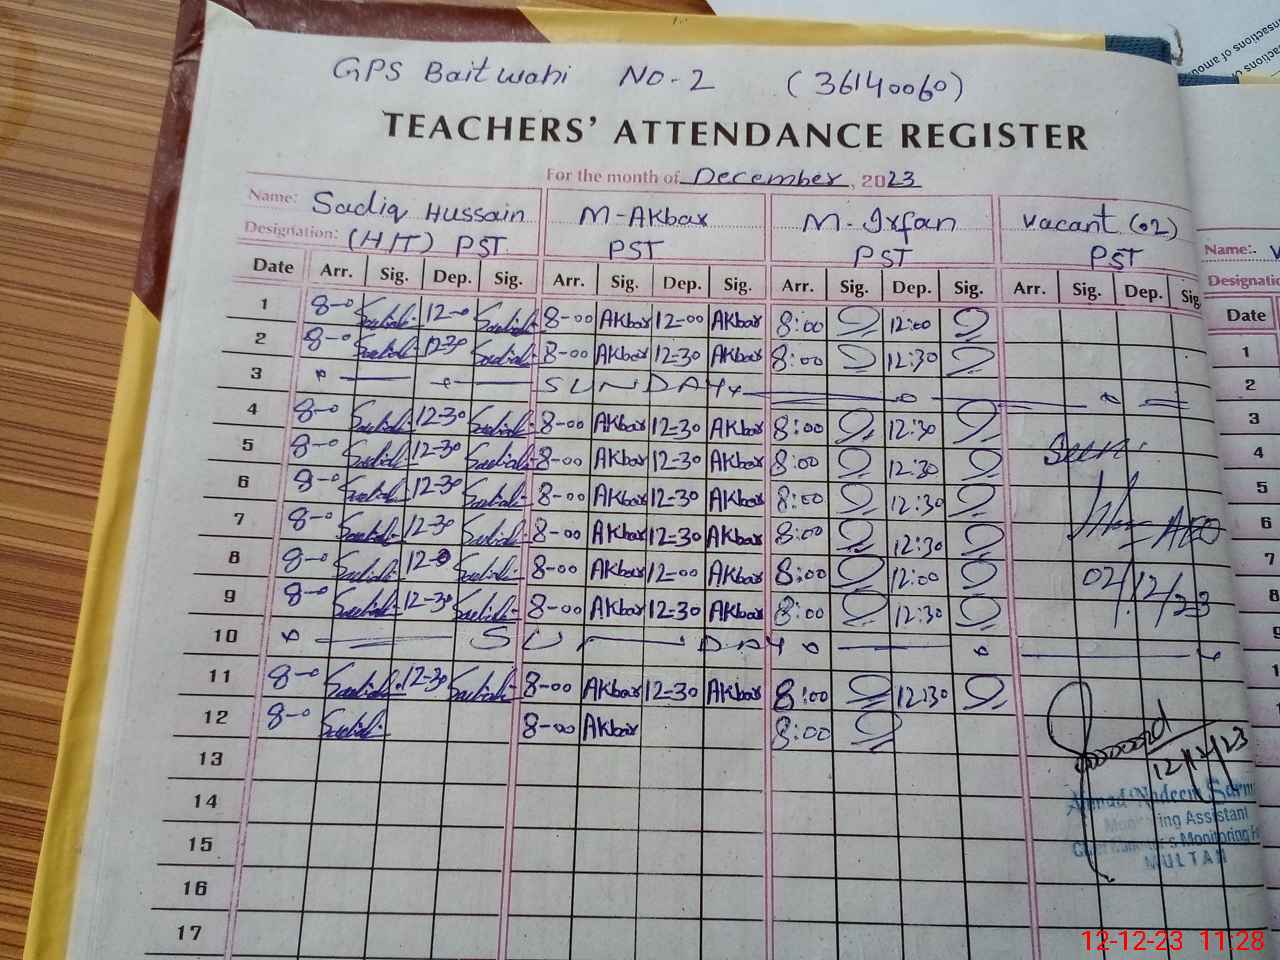 GPS Baitwahi NO-2 (36140060)
TEACHERS' ATTENDANCE REGISTER
For the month of December, 2023
Name: Sadiq Hussain M-Akbar M-Irfan Vacant (02)
Designation: (H/T) PST PST PST PST
Date Arr. Sig. Dep. Sig. Arr. Sig. Dep. Sig. Arr. Sig. Dep. Sig. Arr. Sig. Dep. Sig.
1 8-0 Sadiq 12-0 Sadiq 8-00 Akbar 12-00 Akbar 8:00 12:00
2 8-0 Sadiq 12-30 Sadiq 8-00 Akbar 12-30 Akbar 8:00 12:30
3 SUNDAY
4 8-0 Sadiq 12-30 Sadiq 8-00 Akbar 12-30 Akbar 8:00 12:30
5 8-0 Sadiq 12-30 Sadiq 8-00 Akbar 12-30 Akbar 8:00 12:30
6 8-0 Sadiq 12-30 Sadiq 8-00 Akbar 12-30 Akbar 8:00 12:30
7 8-0 Sadiq 12-30 Sadiq 8-00 Akbar 12-30 Akbar 8:00 12:30
AEO
8 8-0 Sadiq 12-0 Sadiq 8-00 Akbar 12-00 Akbar 8:00 12:00
02/12/23
9 8-0 Sadiq 12-30 Sadiq 8-00 Akbar 12-30 Akbar 8:00 12:30
10 SUNDAY
11 8-0 Sadiq 12-30 Sadiq 8-00 Akbar 12-30 Akbar 8:00 12:30
12 8-0 Sadiq 8-00 Akbar 8:00
12/12/23
13
14
15
16
17
Ahmad Nadeem
Monitoring Assistant
MULTAN
Name:-
Date
1
2
3
4
5
6
7
8
9
12-12-23 11:28